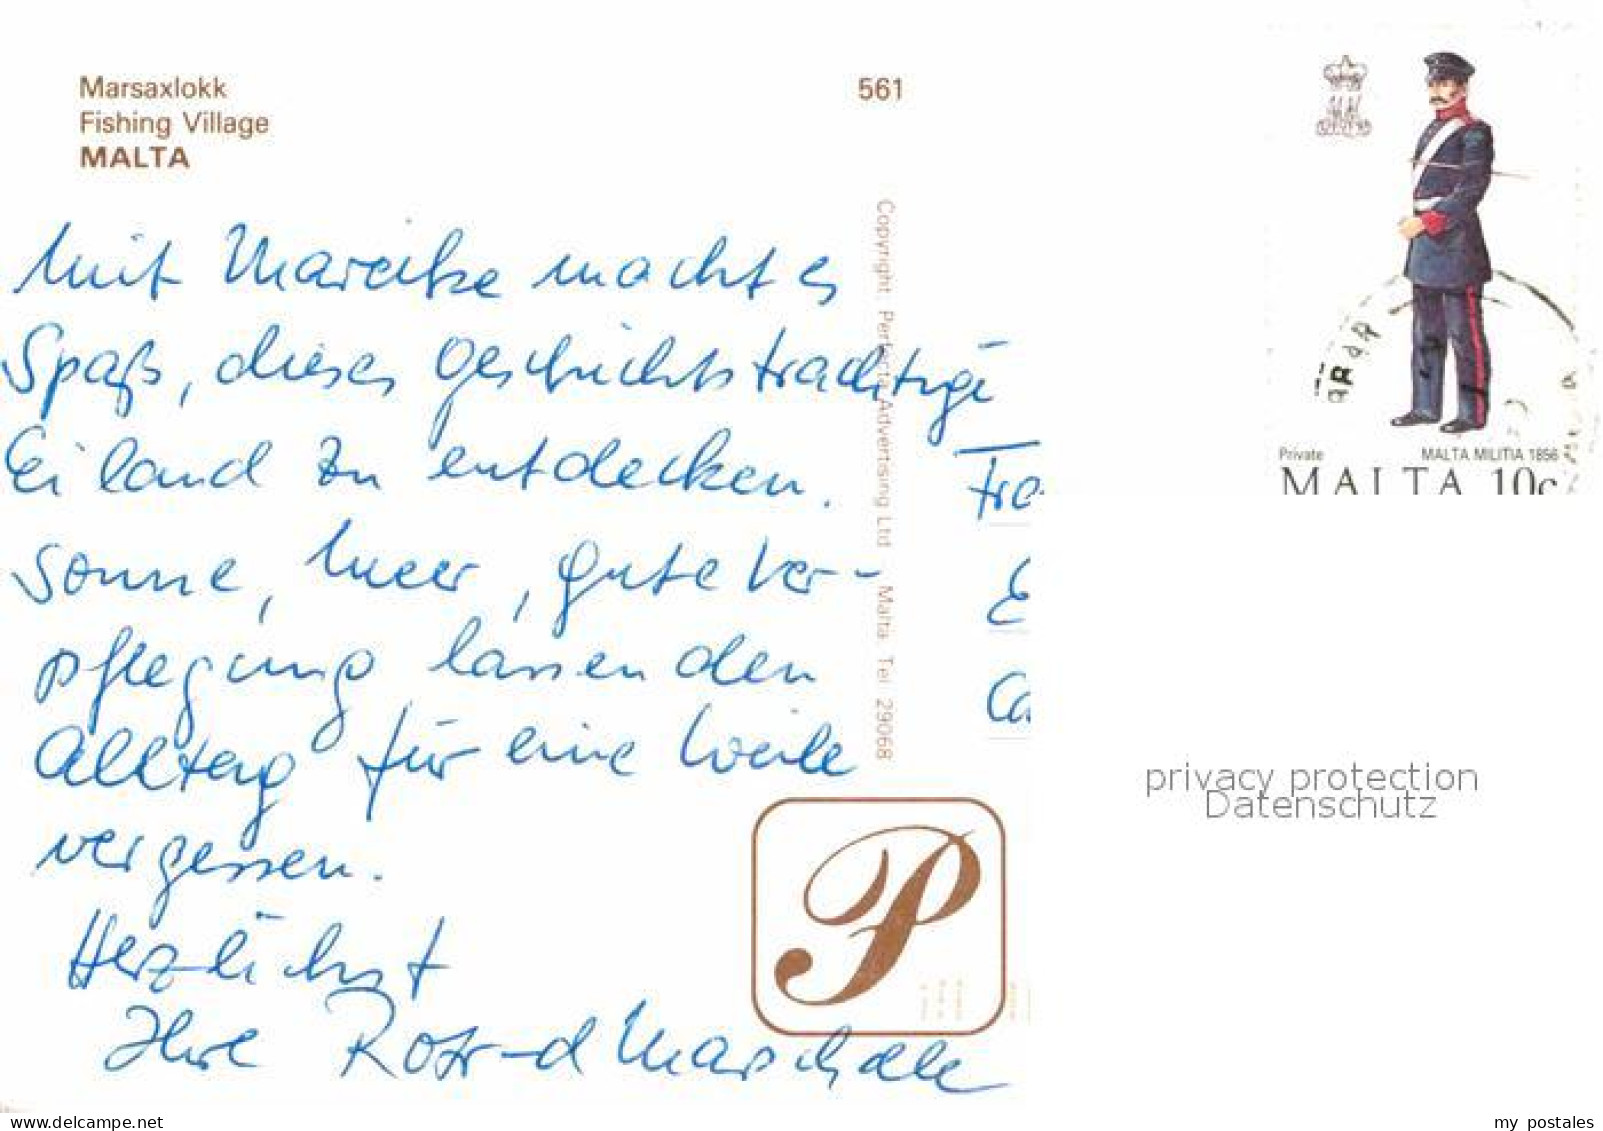 Marsaxlokk
Fishing Village
MALTA
561
Mit Mareike macht es
Spaß, dieses geschichtsträchtige
Eiland zu entdecken.
Sonne, Meer, gute Ver-
pflegung lassen den
Alltag für eine Weile
vergessen.
Herzlichst
Ihre
Copyright: Perfecta Advertising Ltd Malta. Tel: 29068
P
Private MALTA MILITIA 1856
MALTA 10c
privacy protection
Datenschutz
delcampe.net
my_postales